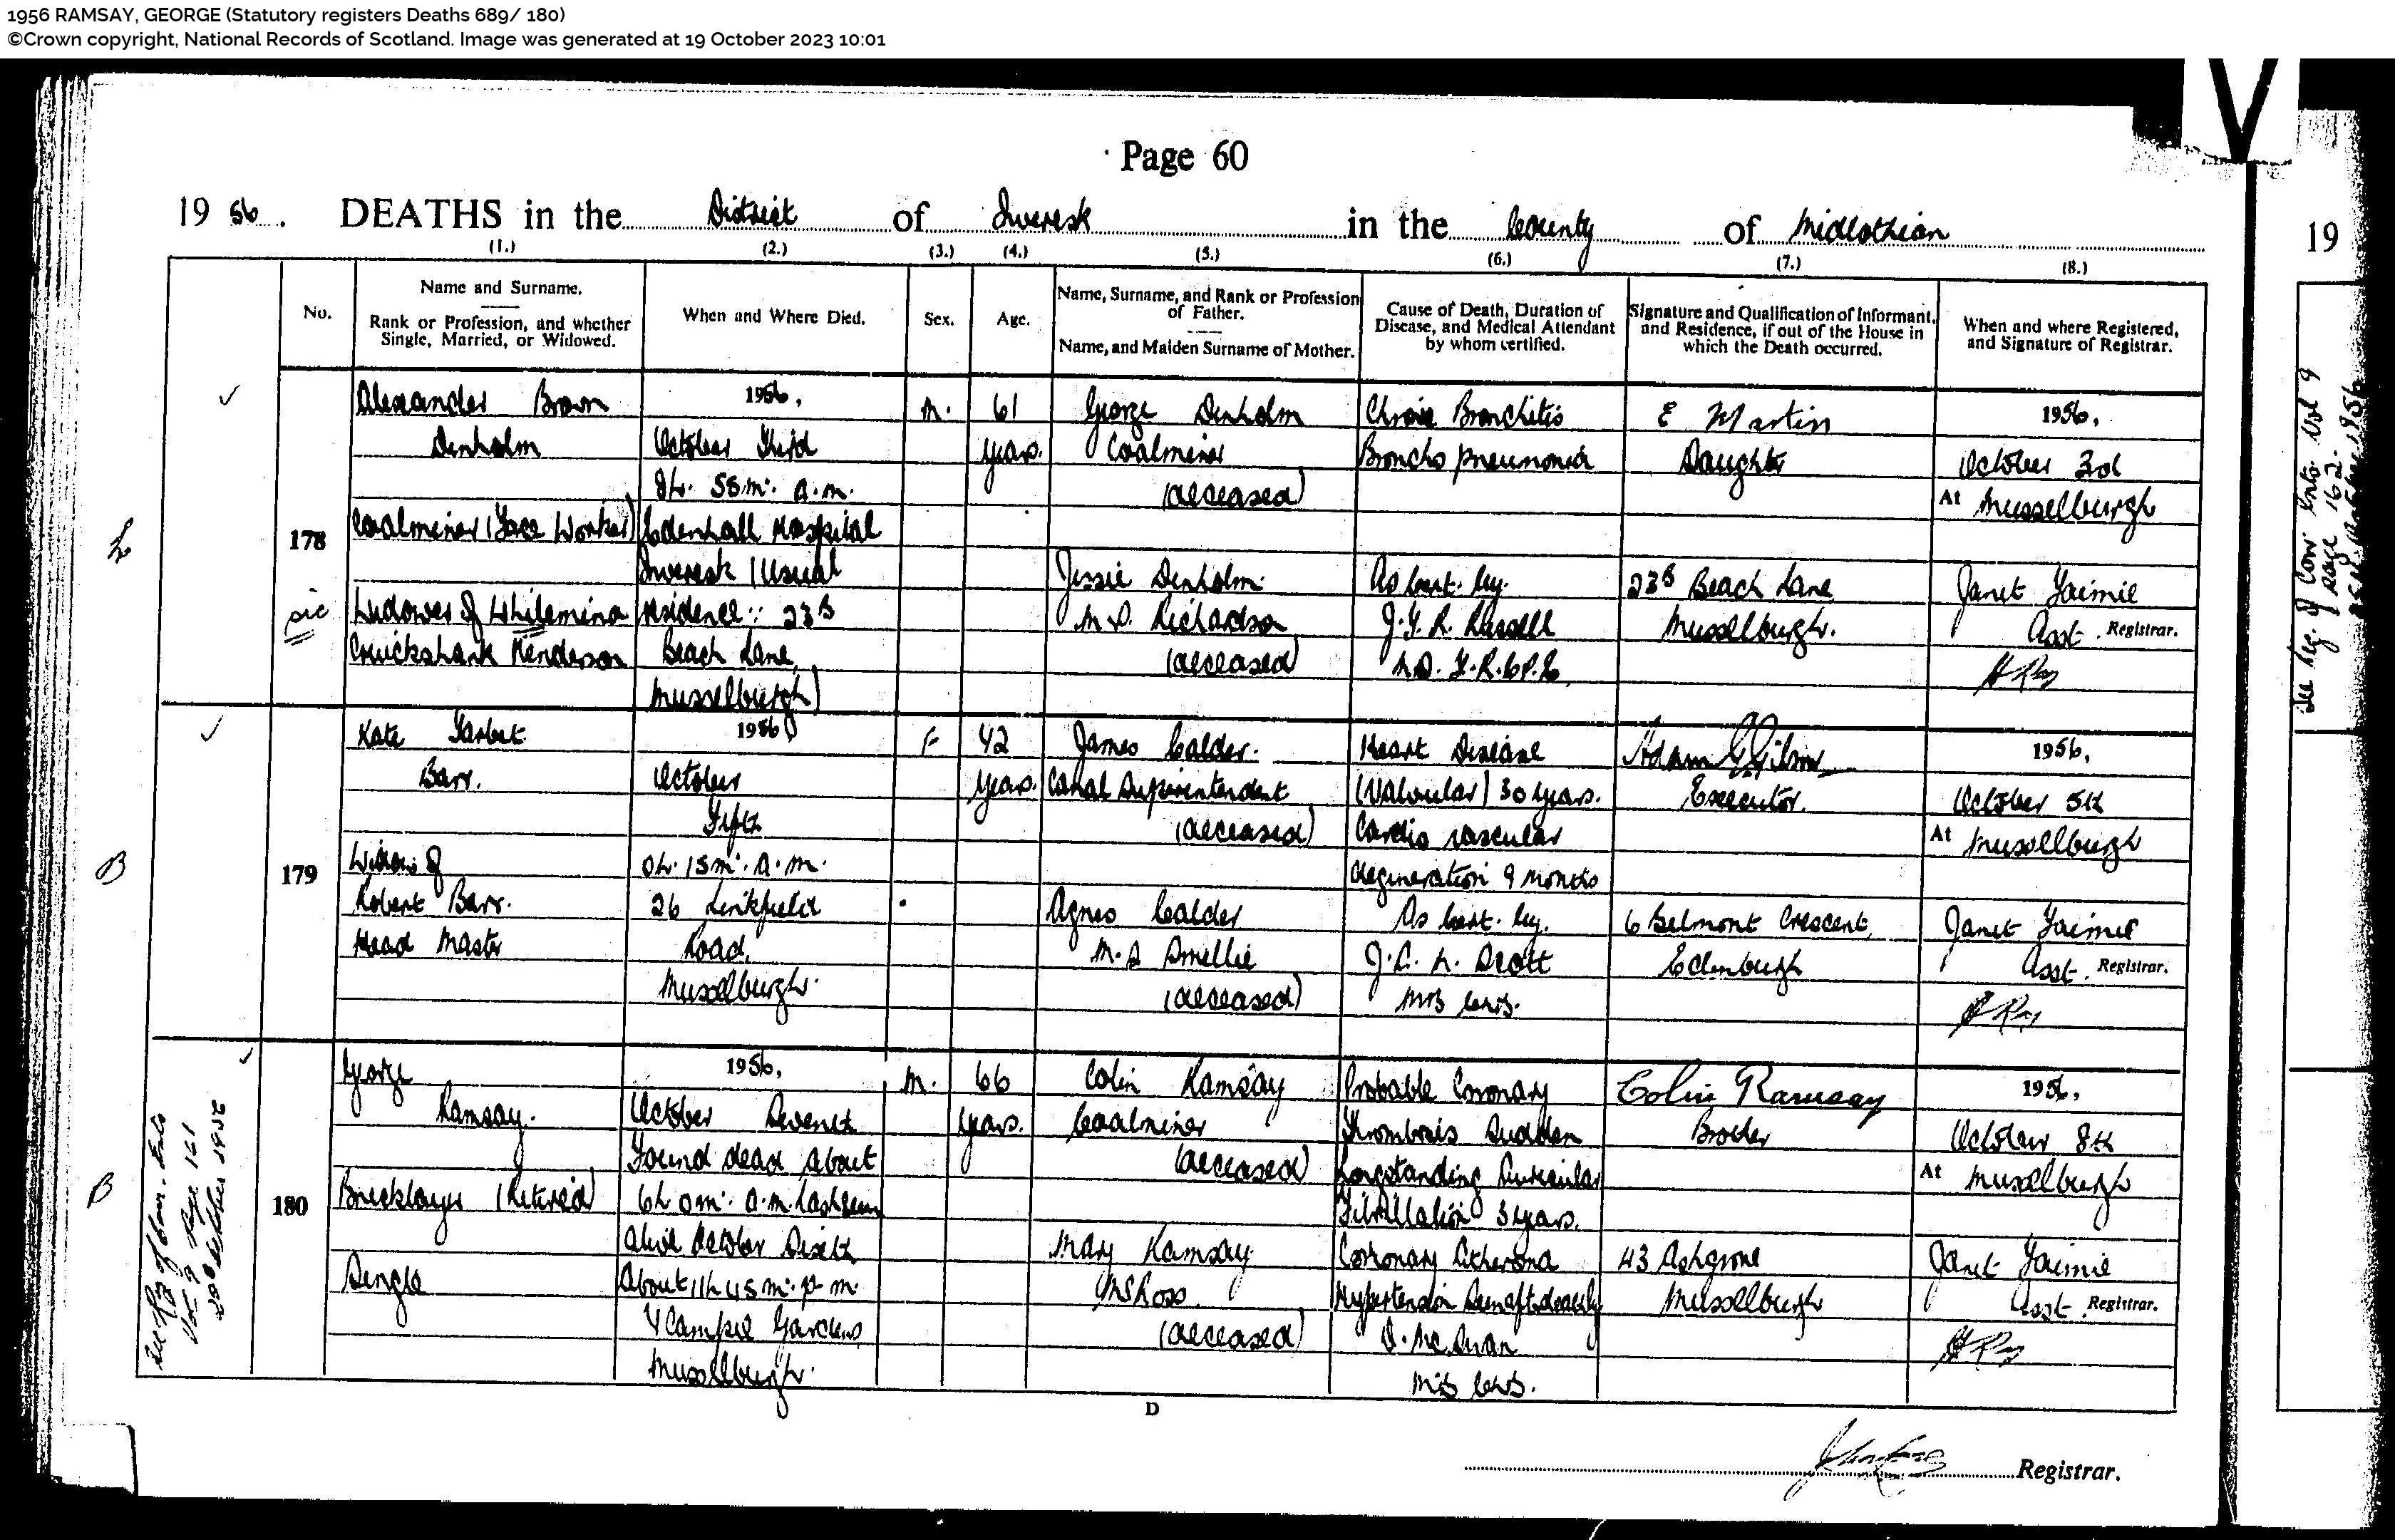 1956 RAMSAY, GEORGE (Statutory registers Deaths 689/ 180)
©Crown copyright, National Records of Scotland. Image was generated at 19 October 2023 10:01
Page 60
1956. DEATHS in the District of Inveresk in the County of Midlothian
19
(1.) (2.) (3.) (4.) (5.) (6.) (7.) (8.)
No.
Name and Surname.
Rank or Profession, and whether
Single, Married, or Widowed.
When and Where Died.
Sex.
Age.
Name, Surname, and Rank or Profession
of Father.
Name, and Maiden Surname of Mother.
Cause of Death, Duration of
Disease, and Medical Attendant
by whom certified.
Signature and Qualification of Informant,
and Residence, if out of the House in
which the Death occurred.
When and where Registered,
and Signature of Registrar.
178
sic
Alexander Brown
Denholm
Coalminer (Face Worker)
Widower of Whilemina
Cruickshank Henderson
1956,
October Third
8h. 55m. a.m.
Edenhall Hospital
Inveresk (Usual
residence:: 23B
Beach Lane,
Musselburgh)
M.
61
years.
George Denholm
Coalminer
(deceased)
Jessie Denholm.
M.S. Richardson
(deceased)
Chronic Bronchitis
Broncho pneumonia
As cert. by.
J.Y.R. Russell
M.D. F.R.C.P.E.
E Martin
Daughter
23B Beach Lane
Musselburgh.
1956,
October 3rd
At Musselburgh
Janet Jaimie
Asst. Registrar.
179
B
Kate Tarbet
Barr.
Widow of
Robert Barr.
Head Master
1956
October
Fifth
0h. 15m. a.m.
26 Linkfield
Road,
Musselburgh.
F
42
years.
James Calder.
Canal Superintendent
(deceased)
Agnes Calder
M.S. Smellie
(deceased)
Heart Disease
(Valvular) 30 years.
Cardio vascular
degeneration 9 months
As cert. by.
J. Scott
MB ChB.
Adam Gibson
Executor.
6 Belmont Crescent,
Edinburgh
1956,
October 5th
At Musselburgh
Janet Jaimie
Asst. Registrar.
180
B
George
Ramsay.
Bricklayer (Retired)
Single
1956,
October Seventh
Found dead about
6h 0m. a.m. Last seen
alive October Sixth
About 11h 45m. p.m.
4 Campie Gardens,
Musselburgh.
M.
66
years.
Colin Ramsay
Coalminer
(deceased)
Mary Ramsay.
MS Ross.
(deceased)
Probable Coronary
Thrombosis Sudden
Longstanding Auricular
Fibrillation 3 years.
Coronary Atheroma
Hypertension
MB ChB.
Colin Ramsay
Brother
43 Ashgrove
Musselburgh
1956,
October 8th
At Musselburgh
Janet Jaimie
Asst. Registrar.
See Reg of Corr. Ents
Vol 9 Page 161
See Reg of Corr Ents. Vol 9
Page 162.
D
Registrar.